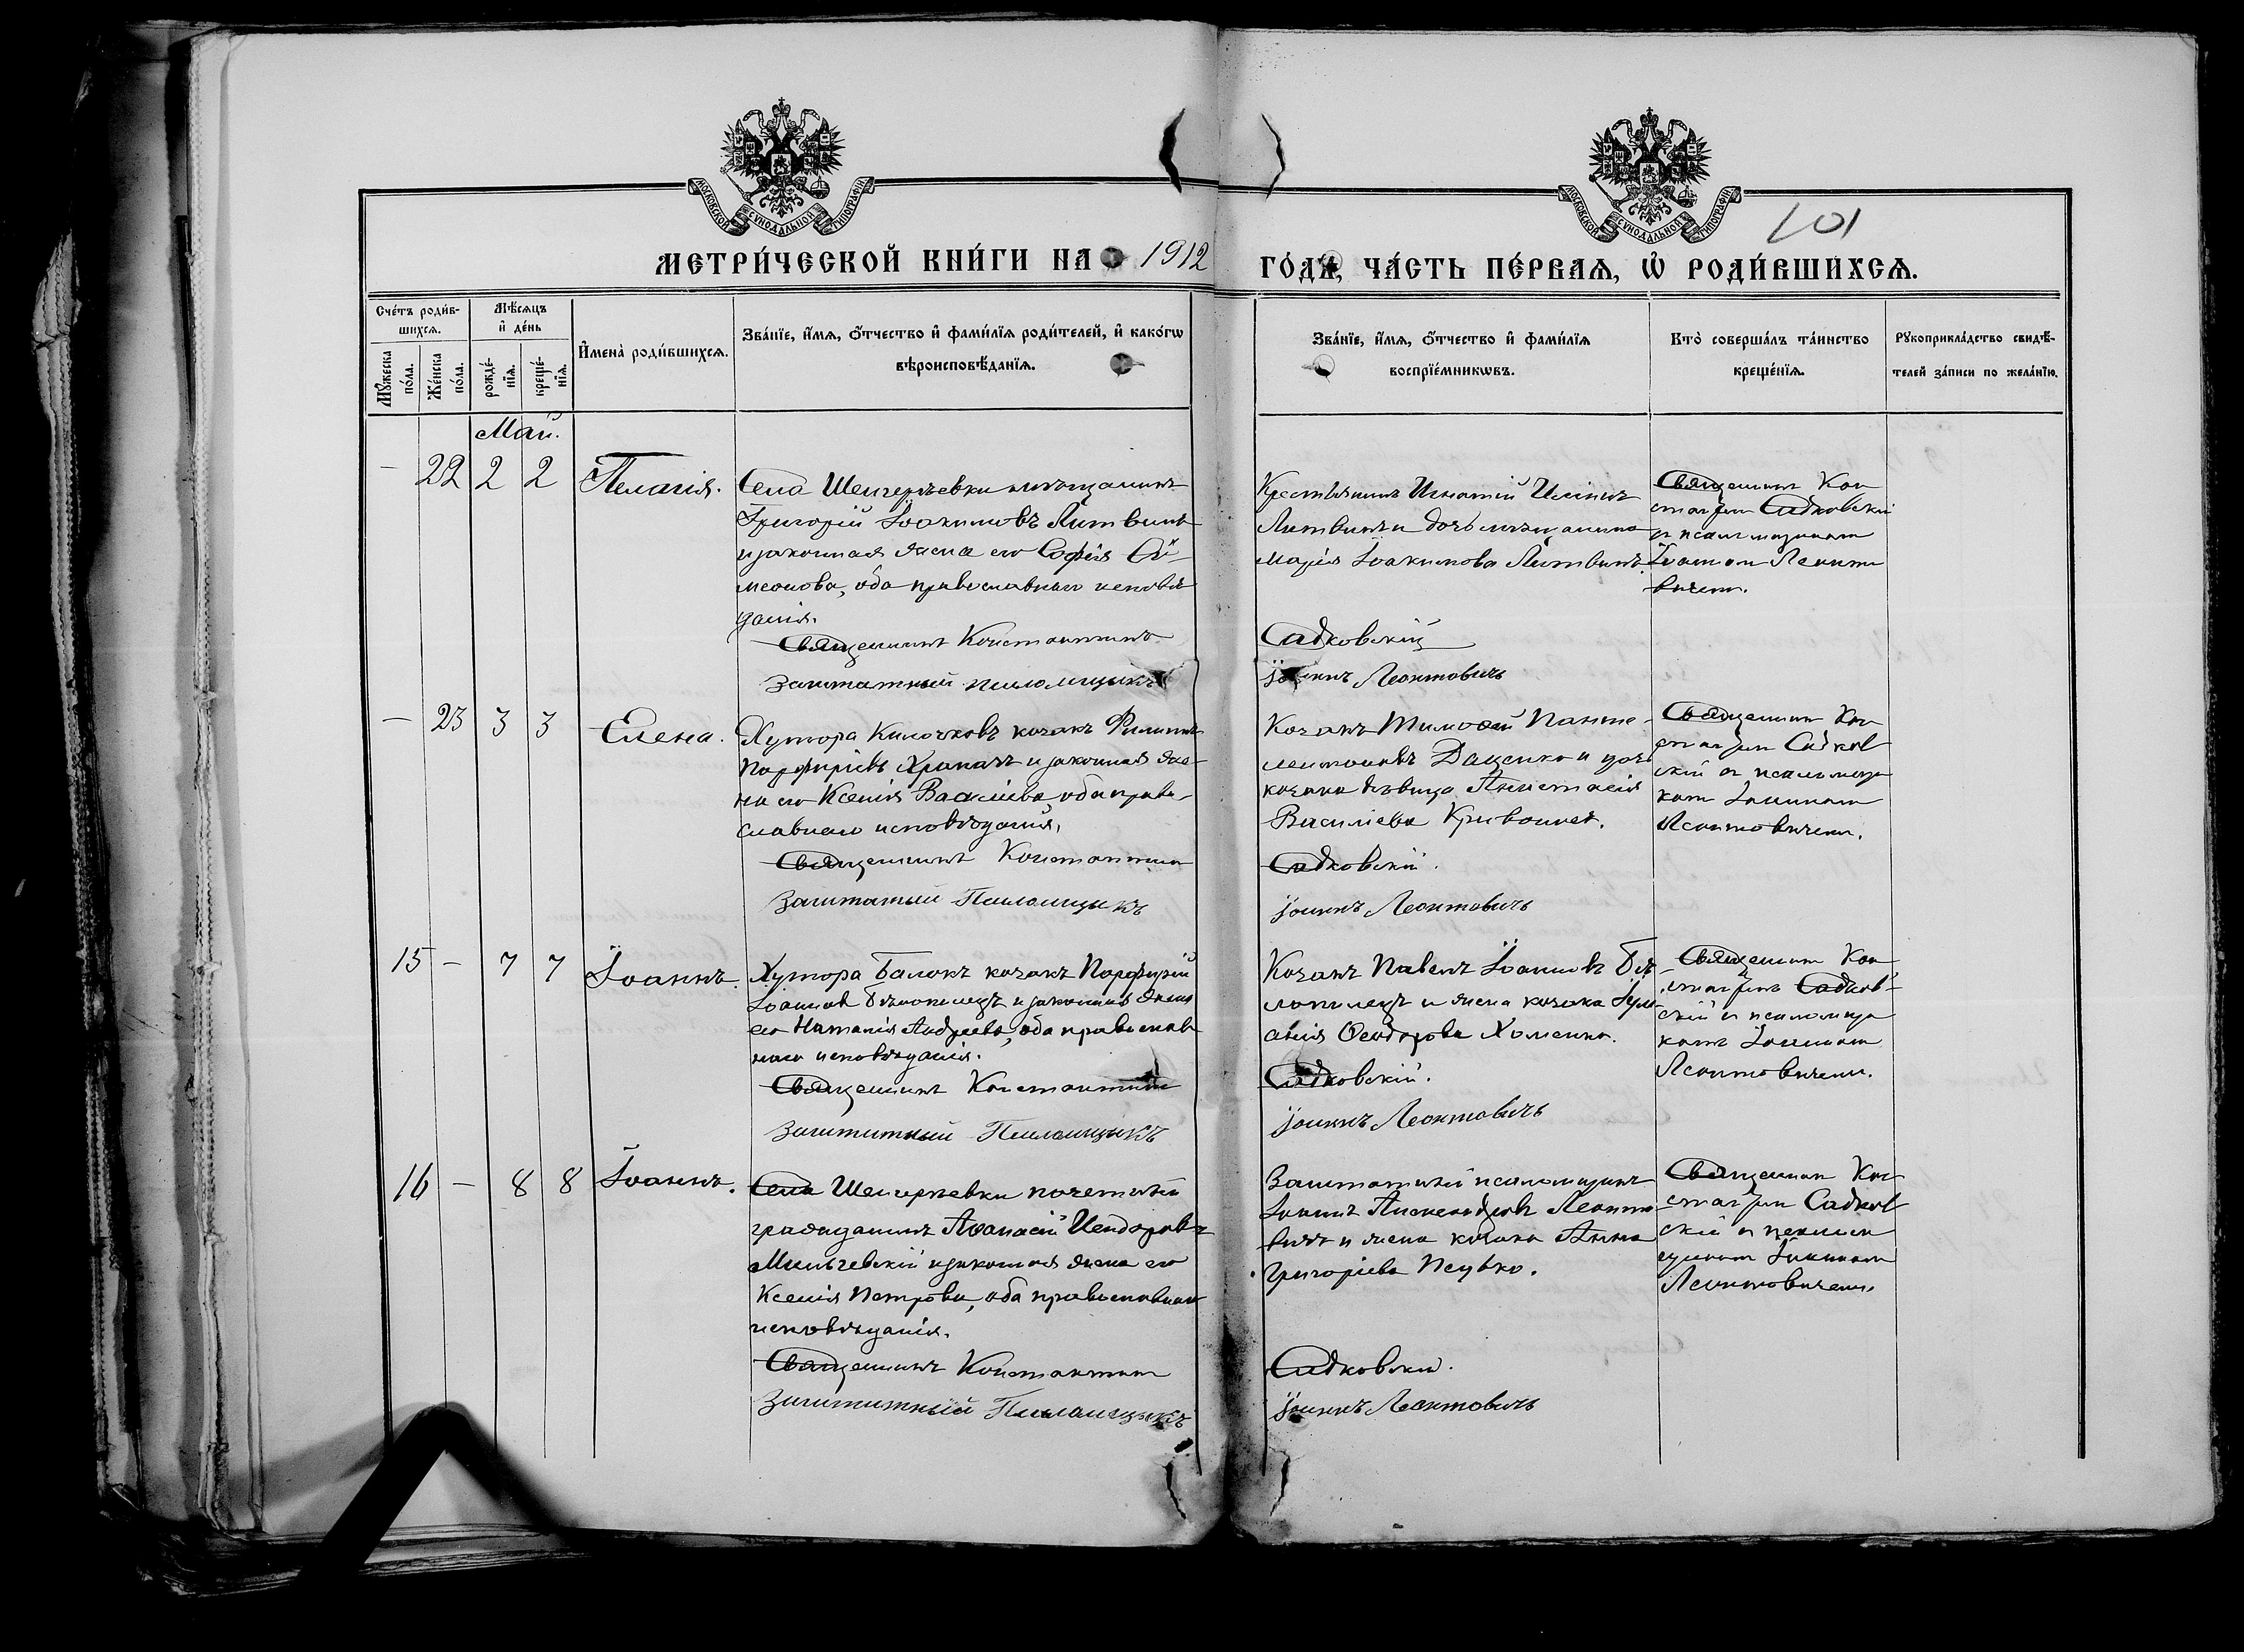 МОСКОВСКОЙ СѴНОДАЛЬНОЙ ТИПОГРАФІИ
МОСКОВСКОЙ СѴНОДАЛЬНОЙ ТИПОГРАФІИ
101
МЕТРИ́ЧЕСКОЙ КНИ́ГИ НА 1912 ГО́ДЪ, ЧА́СТЬ ПЕ́РВАѦ, Ѡ҆ РОДИ́ВШИХСѦ.
Сче́тъ роди́в-
шихсѧ.
Мꙋ́жеска по́ла.
Же́нска по́ла.
Мѣ́сѧцъ
и҆ де́нь
рожде́-
нїѧ.
креще́-
нїѧ.
И҆мена̀ роди́вшихсѧ.
Зва́нїе, и҆́мѧ, ѻ҆́тчество и҆ фами́лїѧ роди́телей, и҆ како́гѡ
вѣроисповѣ́данїѧ.
Зва́нїе, и҆́мѧ, ѻ҆́тчество и҆ фами́лїѧ
воспрїе́мникѡвъ.
Кто̀ соверша́лъ та́инство
креще́нїѧ.
Рꙋкоприкла́дство свидѣ́-
телей за́писи по жела́нїю.
Май.
— 22 2 2 Пелагія.
Села Шенгерѣевки мѣщанинъ
Григорій Іоакимовъ Литвинъ
и законная жена его Софія Си-
меонова, оба православнаго исповѣ
данія.
Священникъ Константинъ
Заштатный псаломщикъ
Крестьянинъ Игнатій
Литвинъ и дочь мѣщанина
Марія Іоакимова Литвинъ.
Садковскій
Іоаннъ Леонтовичъ
Священникъ Кон
стантин Садковскій
съ псаломщикомъ
Іоанном Леонто
вичем.
— 23 3 3 Елена.
Хутора Килочковъ козакъ Филиппъ
Порфиріевъ Храпачъ и законная же-
на его Ксенія Василіева, оба право-
славнаго исповѣданія.
Священникъ Константин
Заштатный Псаломщикъ
Козакъ Тимофей Панте-
леимоновъ Даценко и дочь
козака дѣвица Анастасія
Василіева
Садковскій.
Іоаннъ Леонтовичъ
Священник Кон
стантин Садков
скій съ псаломщи
ком Іоанном
Леонтовичем.
15 — 7 7 Іоаннъ.
Хутора Балокъ козакъ Порфирій
Іоаннов Бѣлопилецъ и законная жена
его Наталія Андреева, оба православ
наго исповѣданія.
Священникъ Константин
Заштатный Псаломщикъ
Козакъ Павелъ Іоанновъ Бѣ
лопилецъ и жена козака Іули
анія Феодорова Хоменко.
Садковскій.
Іоаннъ Леонтовичъ
Священник Кон
стантинъ Садков-
скій съ псаломщи
комъ Іоанном
Леонтовичем.
16 — 8 8 Іоаннъ.
Села Шенгерѣевки почетный
гражданинъ Афанасій
Мильчевскій и законная жена его
Ксенія Петрова, оба православнаго
исповѣданія.
Священникъ Константин
Заштатный Псаломщикъ
Заштатный псаломщикъ
Іоаннъ Александров Леонто
вичъ и жена козака Анна
Григоріева
Садковскій.
Іоаннъ Леонтовичъ
Священник Кон
стантин Садков
скій съ псалом
щиком Іоанном
Леонтовичем.